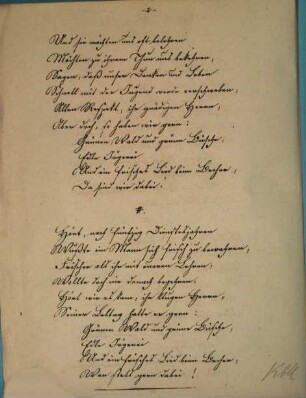 - 2 -
Und sie möchten uns oft belehren
Möchten zu ihrem Thun uns bekehren,
Sagen, daß unser Denken und Leben
Schnell mit der Jugend wird verschweben.
Allen Respekt, ihr gnädigen Herren,
Aber doch, so haben wir gern:
Grünen Wald und grüne Büsche,
Edle Jägerei
Und ein frisches Lied beim Becher,
Da sind wir dabei.
Hört, nach fünfzig Dienstesjahren
Wußte ein Mann sich frisch zu bewahren,
Frischer als ihr mit euren Lehren,
Wollte doch nie danach begehren.
Hört wie es kam, ihr klugen Herren,
Seiner Lebtag hatte er gern:
Grünen Wald und grüne Büsche,
Edle Jägerei
Und ein frisches Lied beim Becher,
War stets gern dabei!